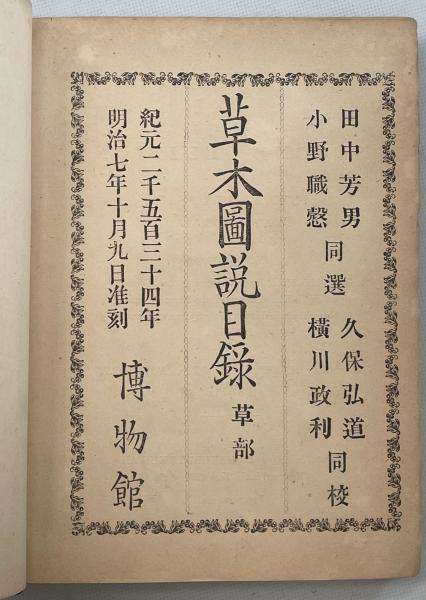 田中芳男 小野職愨 同選 久保弘道 横川政利 同校
草木圖説目録 草部
紀元二千五百三十四年
明治七年十月九日准刻
博物館